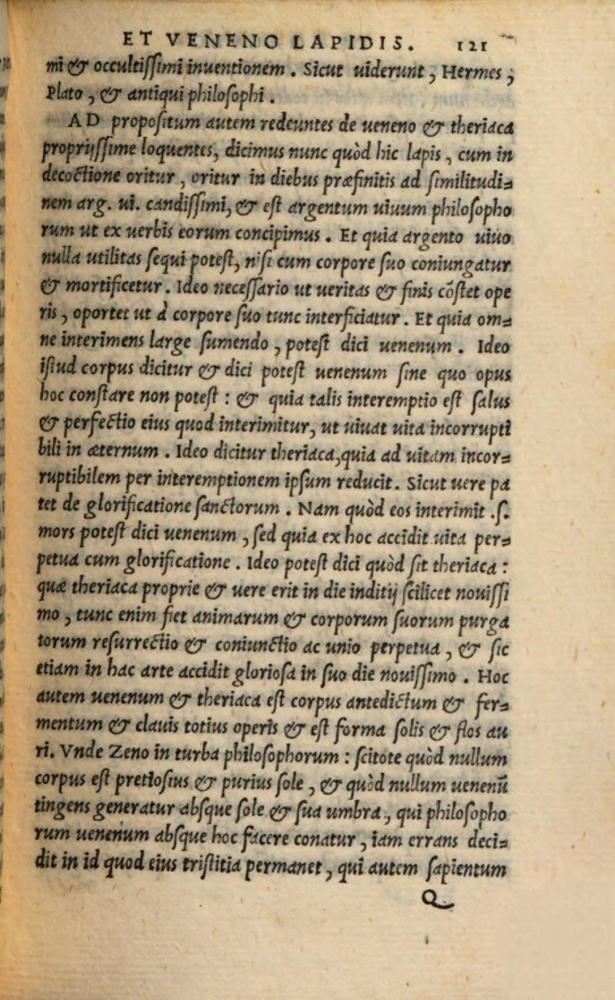 ET VENENO LAPIDIS. 121
mi & occultissimi inuentionem . Sicut uiderunt , Hermes ,
Plato , & antiqui philosophi .
AD propositum autem redeuntes de ueneno & theriaca
proprijssime loquentes, dicimus nunc quòd hic lapis , cum in
decoctione oritur , oritur in diebus præfinitis ad similitudi=
nem arg. ui. candissimi, & est argentum uiuum philosopho
rum ut ex uerbis eorum concipimus . Et quia argento uiuo
nulla utilitas sequi potest, nisi cum corpore suo coniungatur
& mortificetur . Ideo necessario ut ueritas & finis cõstet ope
ris , oportet ut à corpore suo tunc interficiatur . Et quia om=
ne interimens large sumendo , potest dici uenenum . Ideo
istud corpus dicitur & dici potest uenenum sine quo opus
hoc constare non potest : & quia talis interemptio est salus
& perfectio eius quod interimitur, ut uiuat uita incorrupti
bili in æternum . Ideo dicitur theriaca,quia ad uitam incor=
ruptibilem per interemptionem ipsum reducit . Sicut uere pa
tet de glorificatione sanctorum . Nam quòd eos interimit .s.
mors potest dici uenenum , sed quia ex hoc accidit uita per=
petua cum glorificatione . Ideo potest dici quòd sit theriaca :
quæ theriaca proprie & uere erit in die inditij scilicet nouissi
mo , tunc enim fiet animarum & corporum suorum purga
torum resurrectio & coniunctio ac unio perpetua , & sic
etiam in hac arte accidit gloriosa in suo die nouissimo . Hoc
autem uenenum & theriaca est corpus antedictum & fer=
mentum & clauis totius operis & est forma solis & flos au
ri. Vnde Zeno in turba philosophorum : scitote quòd nullum
corpus est pretiosius & purius sole , & quòd nullum uenenũ
tingens generatur absque sole & sua umbra , qui philosopho
rum uenenum absque hoc facere conatur , iam errans deci=
dit in id quod eius tristitia permanet , qui autem sapientum
Q